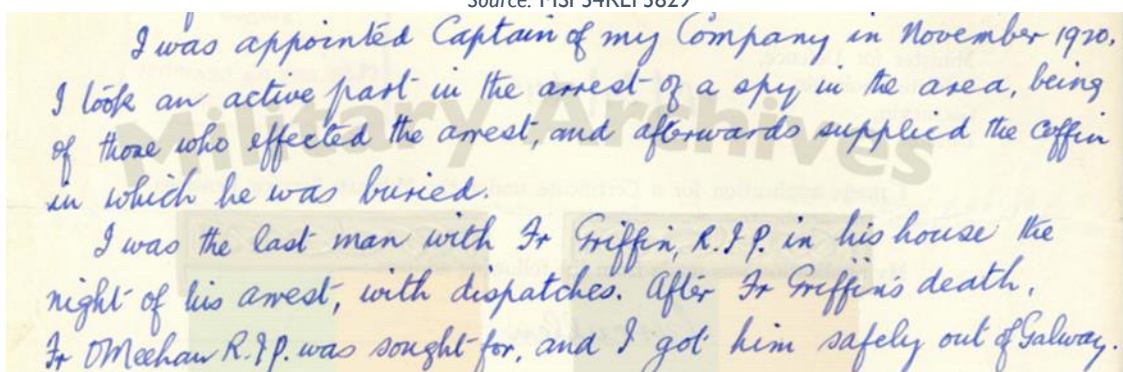 Source: MSP34REF3829
I was appointed Captain of my Company in November 1920.
I took an active part in the arrest of a spy in the area, being
of those who effected the arrest, and afterwards supplied the coffin
in which he was buried.
I was the last man with Fr Griffin, R.I.P. in his house the
night of his arrest, with dispatches. After Fr Griffin's death,
Fr O'Meehan R.I.P. was sought for, and I got him safely out of Galway.
Military Archives